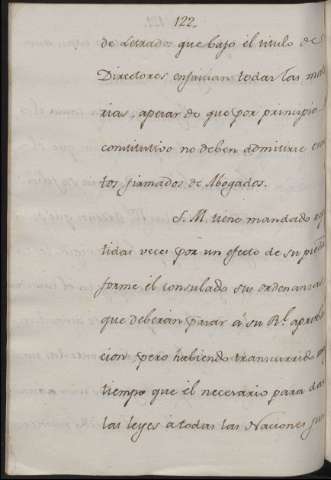 122.
de Letrados que bajo el titulo de
Directores ensucian todas las
rias, apesar de que por principio
constitutivo no deben admitirse
tos firmados de Abogados.
S. M. tiene mandado
tidas veces por un efecto de su
forme el consulado sus ordenanzas
que deberán pasar á su Rl. aproba
cion pero habiendo transcurrido
tiempo que el necesario para dar
las leyes á todas las Naciones